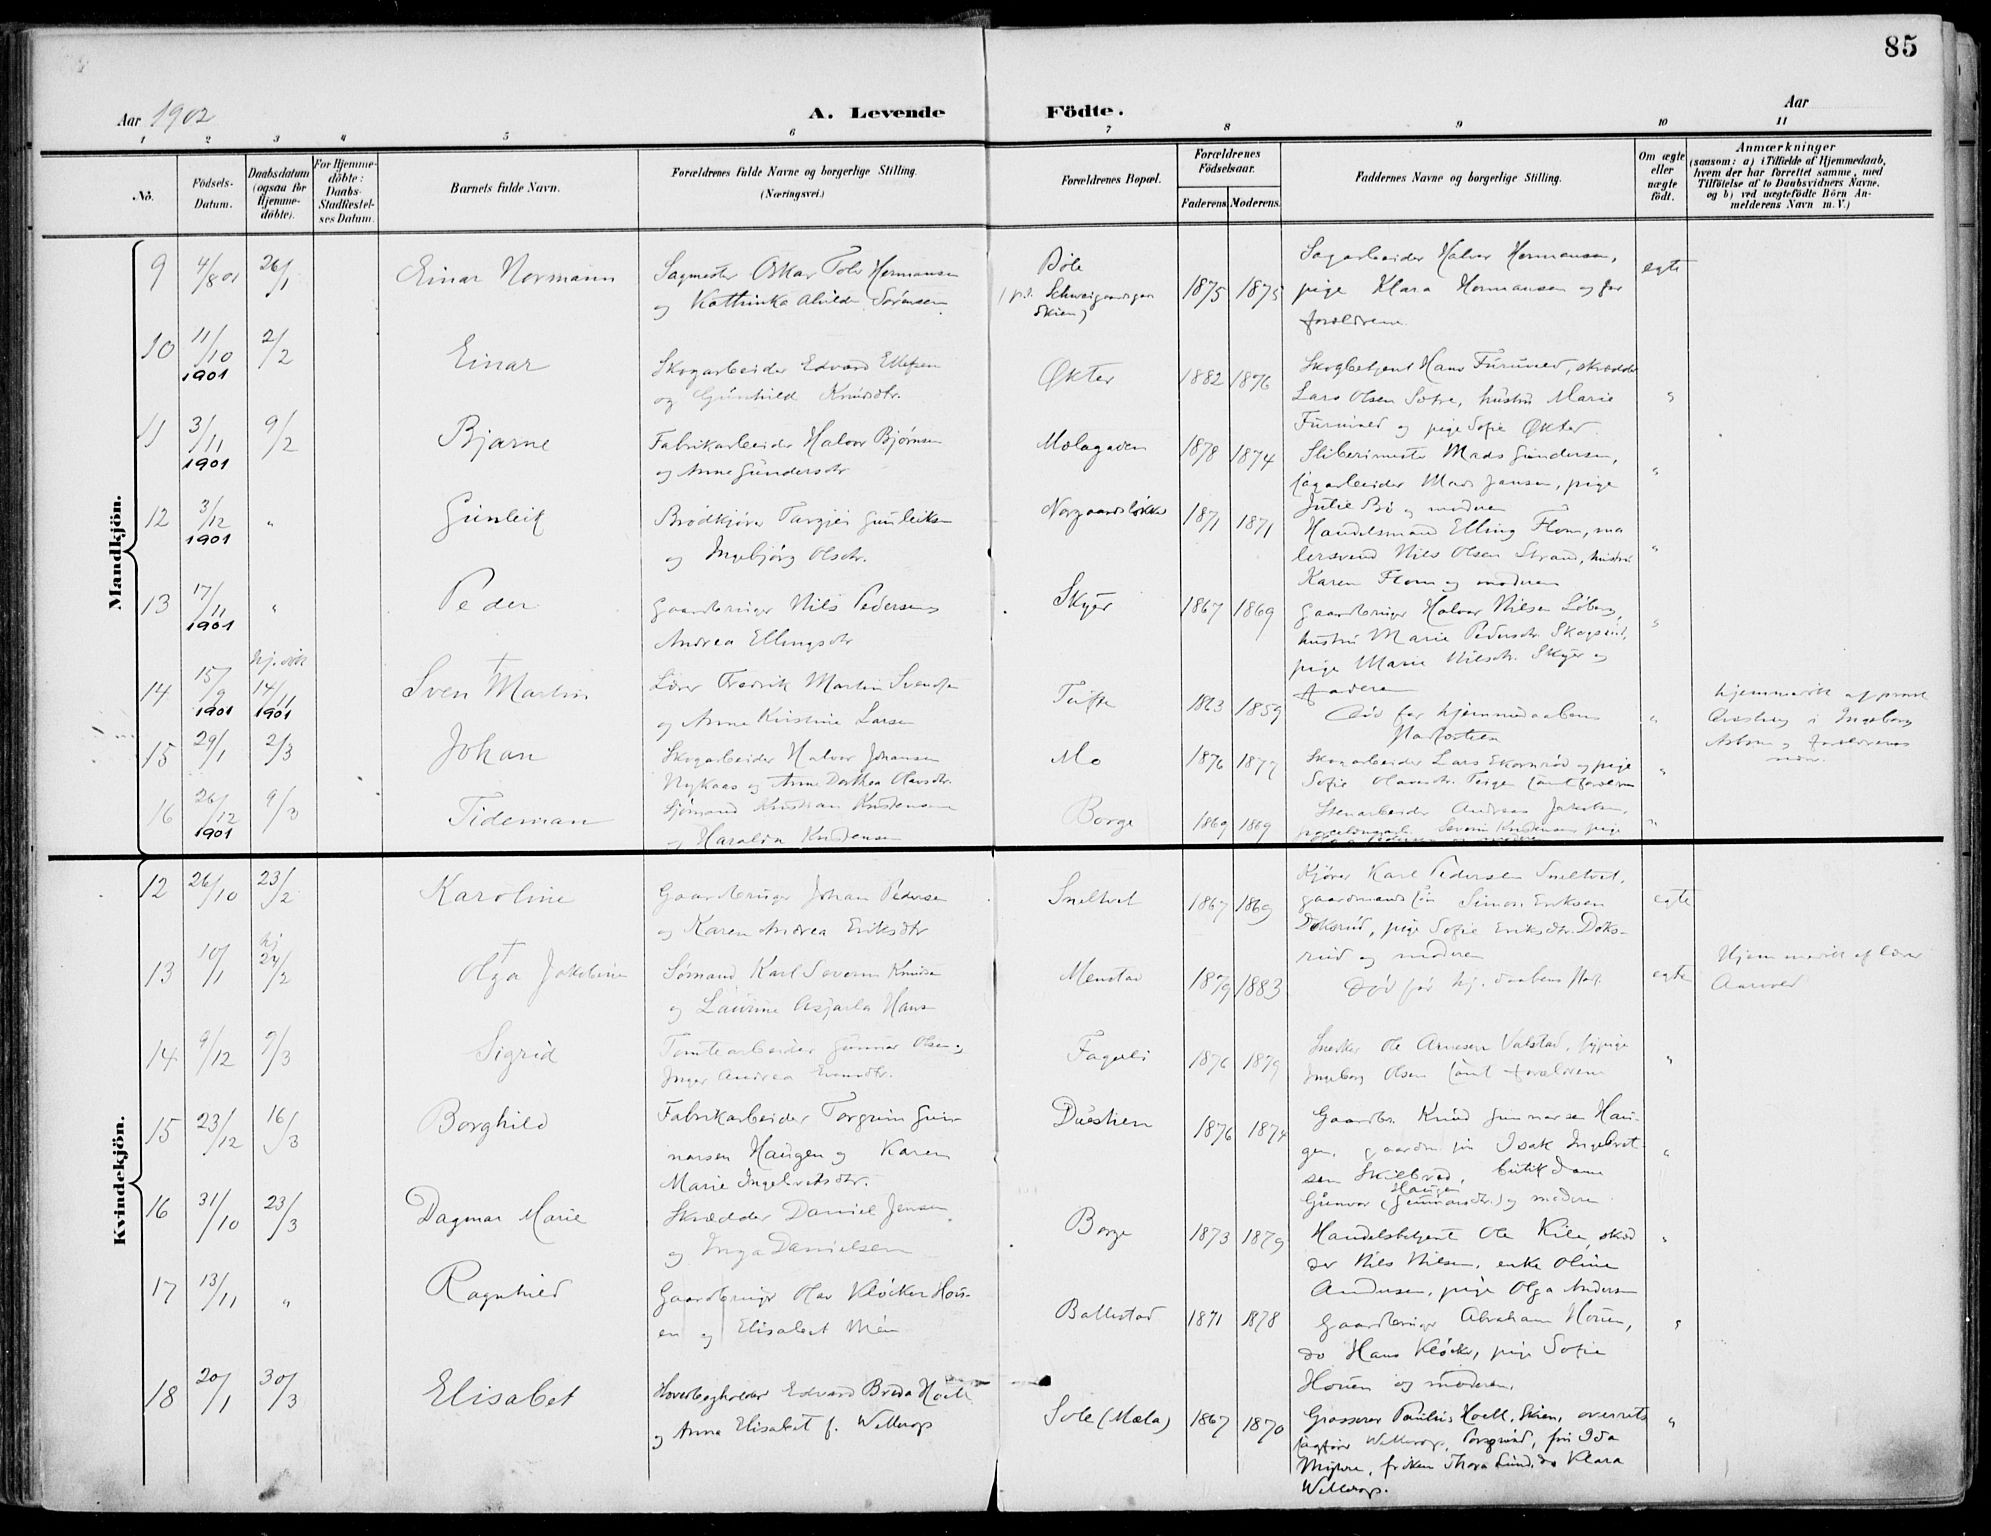 85
Aar 1902
A. Levende Födte.
Aar
1 2 3 4 5 6 7 8 9 10 11
No.
Födsels-Datum.
Daabsdatum (ogsaa for Hjemme-döbte).
For Hjemme-döbte: Daabs-Stadfæstel-ses Datum.
Barnets fulde Navn.
Forældrenes fulde Navne og borgerlige Stilling. (Næringsvei.)
Forældrenes Bopæl.
Forældrenes Födselsaar.
Faderens. Moderens.
Faddernes Navne og borgerlige Stilling.
Om ægte eller uægte födt.
Anmærkninger
(saasom: a) i Tilfælde af Hjemmedaab,
hvem der har forrettet samme, med
Tilföielse af to Daabsvidners Navne,
og b) ved uægtefödte Börn An-
melderens Navn m. V.)
Mandkjön.
9 4/8 01 26/1 Einar Normann
Sagmester Oskar Hermansen
og Kathinka Alvilde Sørensen
Bøle
Skien)
1875 1875
Sagarbeider Halvor Hermansen,
pige Klara Hermansen og
forældrene
egte
10 11/10 1901 2/2 Einar
Skogarbeider Edvard Ellefsen
og Gunhild Knudsdtr.
Økter
1882 1876
Skogbetjent Hans Furuvald, skrædder
Lars Olsen Sotre, hustru Marie
Furuvald og pige Sofie Økter
"
11 3/11 1901 9/2 Bjarne
Fabrikarbeider Halvor Bjørnsen
og Anne Gundersdtr
Mælagaden
1878 1874
Sliberimester Mads Gundersen,
sagarbeider Mads Jansen, pige
Julie Bø og moderen
"
12 3/12 1901 " Gunleik
Brødkjører Targjei Gunleiksen
og Ingebjørg Olsdtr.
Norgaardsløkke
1871 1871
Handelsmand Elling Flom, ma
lersvend Nils Olsen Strand, hustru
Karen Flom og moderen
"
13 17/11 1901 " Peder
Gaardbruger Nils Pedersen og
Andrea Ellingsdtr
Skyer
1867 1869
Gaardbruger Halvor Nilsen Löberg,
hustru Marie Pedersdtr. Skogsrud,
pige Marie Nilsdtr. Skyer og
faderen
"
14 15/9 1901 hj. døbt 14/11 1901 Sven † Martin
Lærer Fredrik Martin Svendsen
og Anne Kirstine Larsen
Tufte
1863 1859
Død før hjemmedaabens
stadfæstelse
"
hjemmedøbt af
i Ingeborg
og forældrenes
nærv.
15 29/1 2/3 Johan
Skogarbeider Halvor Johansen
Nykaas og Anne Dorthea Olavsdtr.
Mo
1876 1877
Skogarbeider Lars Ekornrød og pige
Sofie Olavsdtr. samt forældrene
"
16 26/12 1901 9/3 Tideman
Sjømand Kristian Knudsen
og Haralda Knudsen
Borge
1869 1869
Stenarbeider Andreas Jakobsen,
Severin Knudsen, pige
"
Kvindekjön.
12 26/10 23/2 Karoline
Gaardbruger Johan Pedersen
og Karen Andrea Eriksdtr
Sneltvet
1867 1869
Kjører Karl Pedersen Sneltvet,
gaardmandssøn Simon Eriksen
Doksrud, pige Sofie Eriksdtr. Doks-
rud og moderen
egte
13 10/1 hj 24/2 Olga † Jakobine
Sømand Karl Severin Knudsen
og Laurine Hans
Menstad
1879 1883
Død før hj. daabens staf.
egte
Hjemmedøbt af lærer
Aarvold
14 9/12 9/3 Sigrid
Tomtearbeider Gunnar Olsen og
Inger Andrea Evensdtr.
Fagerli
1876 1879
Snekker Ole Arnesen Valstad,
Ingeborg Olsen samt forældrene
"
15 23/12 16/3 Borghild
Fabrikarbeider Torgrim Gun-
narsen Haugen og Karen
Marie Ingebretsdtr.
Duestien
1876 1874
Gaardbr. Knud Gunnarsen Hau-
gen, gaardm. søn Isak Ingebret-
sen Skilbred, butikdame
Gunvor Haugen (Gunnarsdtr.) og moderen
"
16 31/10 23/3 Dagmar Marie
Skrædder Daniel Jensen
og Inga Danielsen
Borge
1873 1879
Handelsbetjent Ole Kile, skræd
der Nils Nilsen, enke Oline
Andersen, pige Olga Andersen
"
17 13/11 " Ragnhild
Gaardbruger Olav Kløcker Hou-
en og Elisabet Mén
Ballestad
1871 1878
Gaardbruger Abraham Houen,
do Hans Kløcker, pige Sofie
Houen og moderen.
"
18 20/1 30/3 Elisabet
Hovedbogholder Edvard Breda Hoell
og Anna Elisabet f. Wellerop
Sole (Mæla)
1867 1870
Grosserer Paulus Hoell, Skien, overrets
sagfører Wellerop, Porsgrund, fru Ida
frøken Thora Lund, do Klara
Wellerop.
"